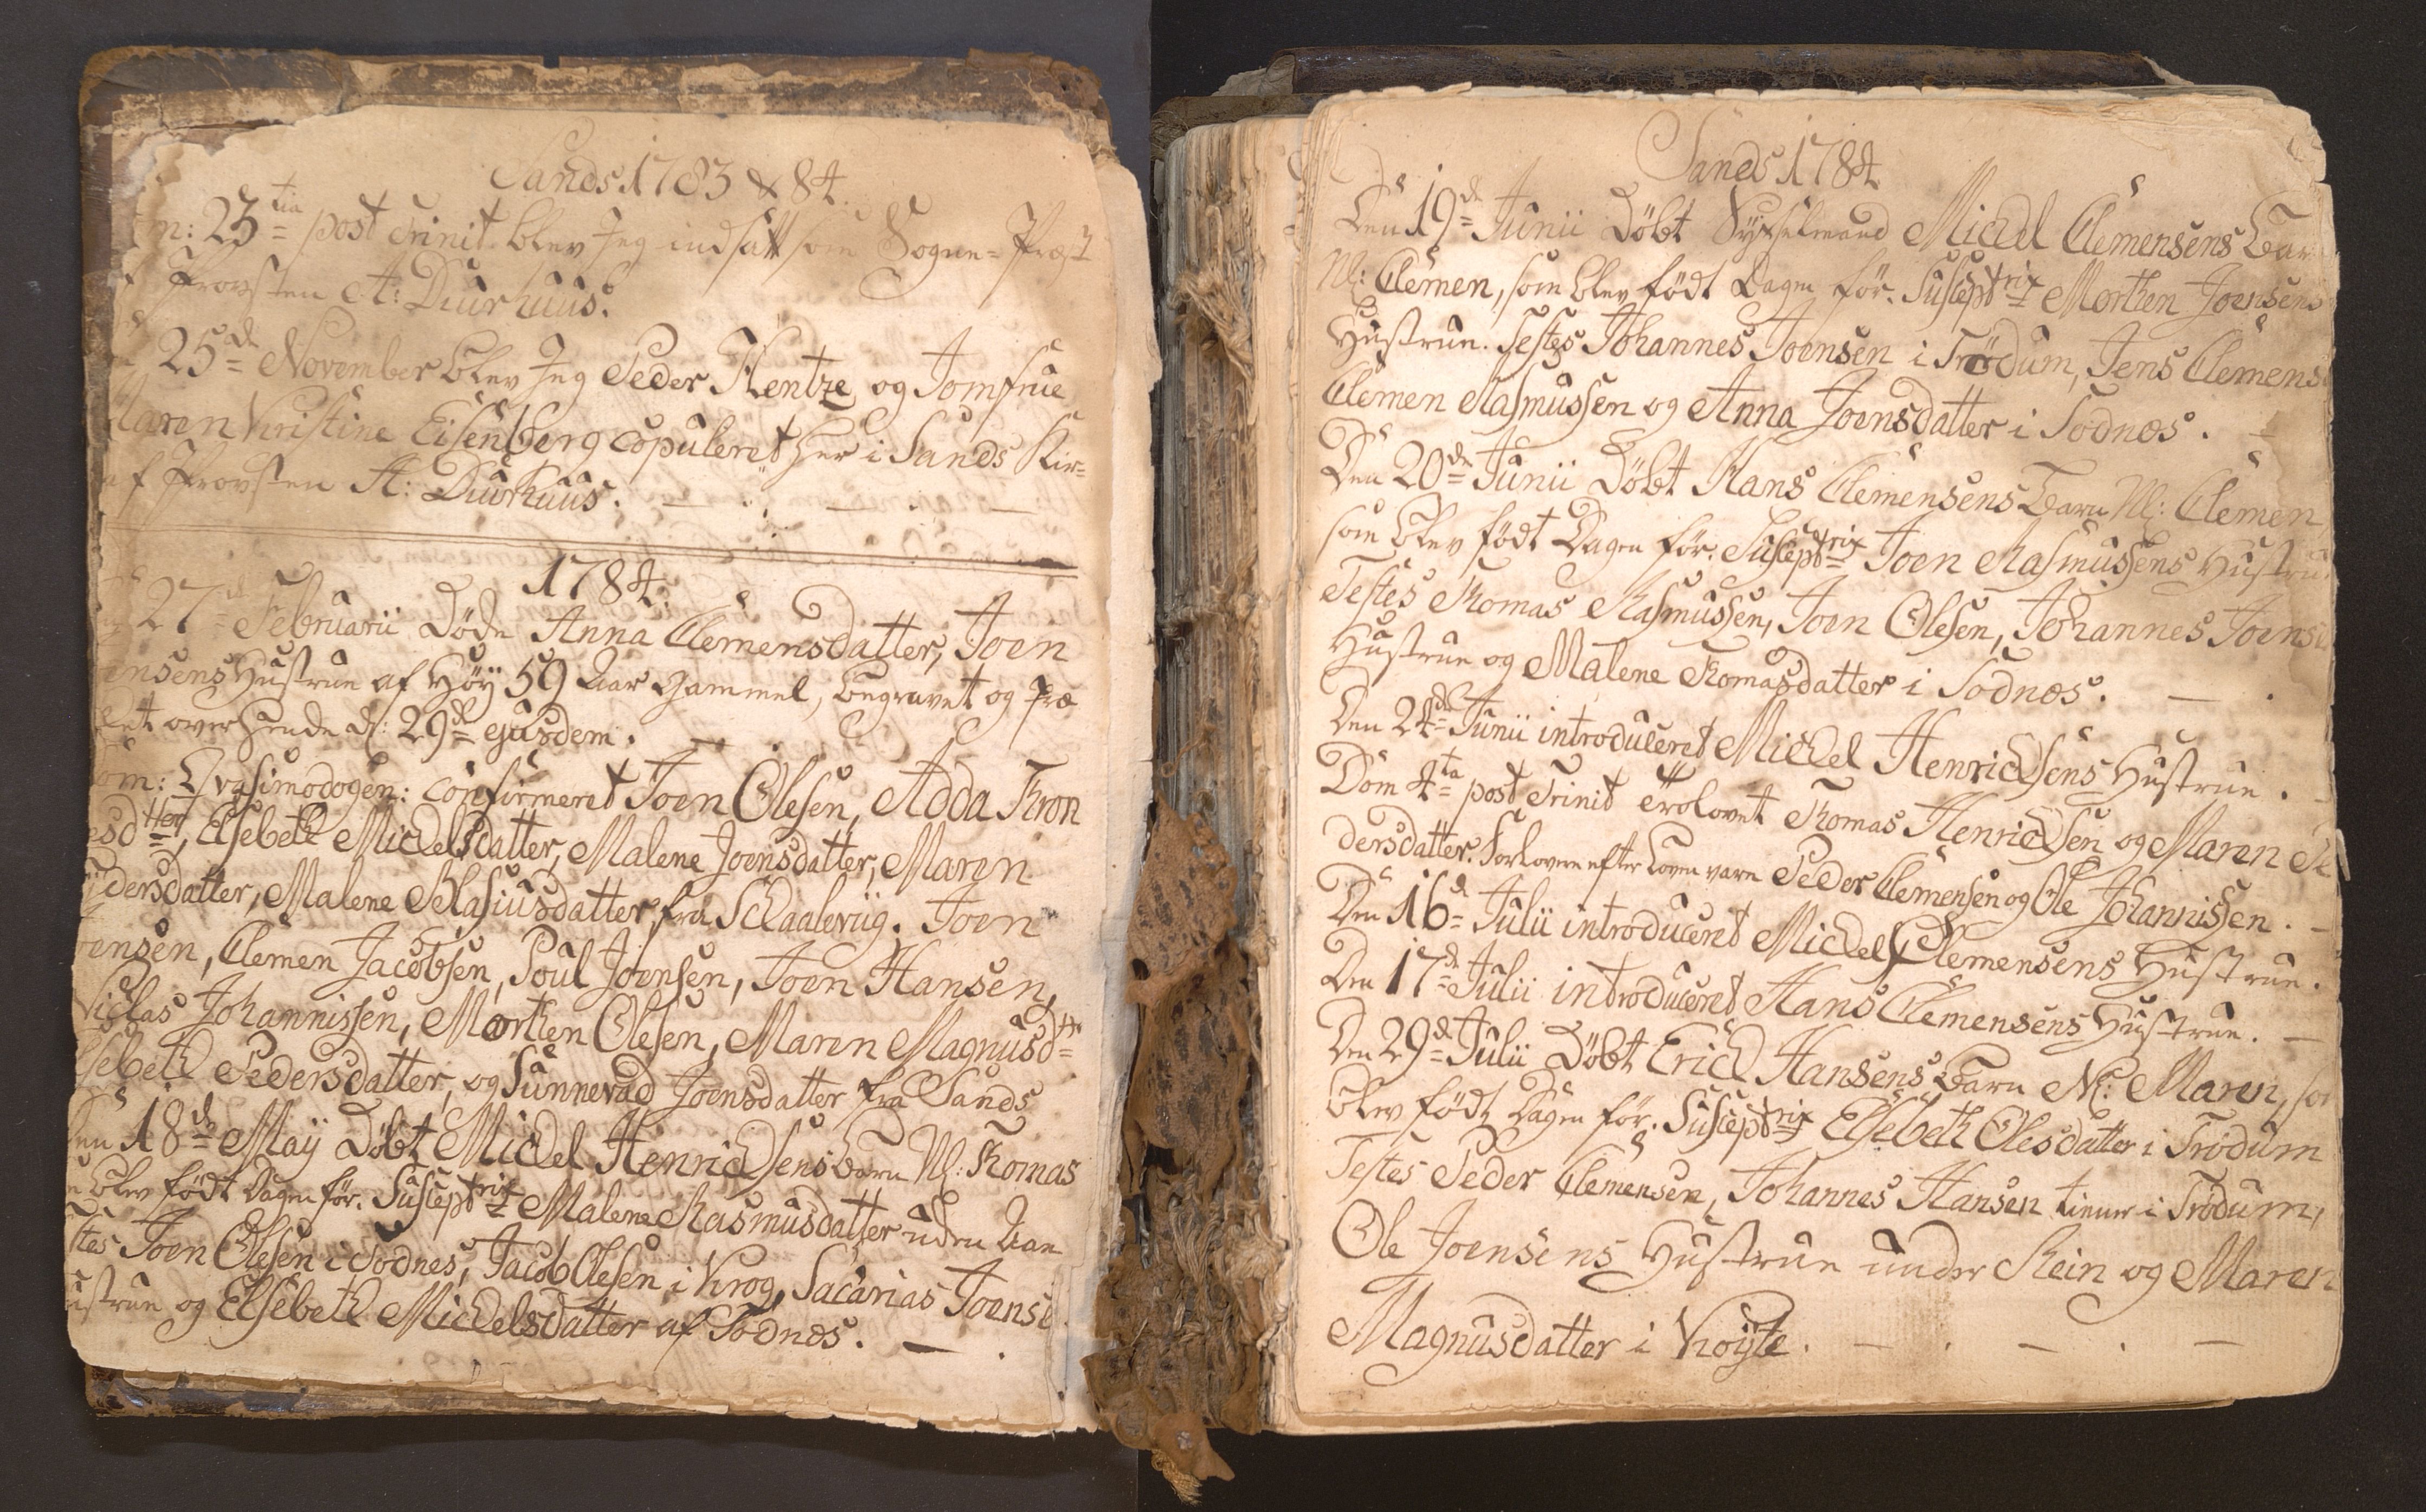 Sands 1783 & 84.
m: 23tia post Trinit. blev Jeg indsatt som Sogne-Præst
Provsten A: Duurhuus.
25de November blev Jeg Peder Hentze og Jomfrue
Maren Kristine Eisenberg copuleret her i Sands Kir-
af Provsten A: Duurhuus.
1784.
27de Februarii Döde Anna Clemensdatter, Joen
ensens Hustrue af Höÿ 59 Aar Gammel, begravet og præ
ket over hende d: 29de ejusdem.
om: Qvasimodogen: confirmeret Joen Olesen, Adda Kron
esdtter, Elsebeth Michelsdatter, Malene Joensdatter, Maren
dersdatter, Malene Blasiusdatter, fra Schaaleviig. Joen
oensen, Clemen Jacobsen, Poul Joensen, Joen Hansen,
Niclas Johannissen, Morthen Olesen, Maren Magnusdtr
sebeth Pedersdatter, og Sunnevad Joensdatter fra Sands
Den 18de Maÿ Döbt Michel Henrichsens barn N: Thomas
blev födt Dagen för. Susceptrix Malene Rasmusdatter uden Aae
stes Joen Olesen i Todnes, Jacob Olesen i Krog, Sacarias Joense
ustrue og Elsebeth Michelsdatter af Todnes.
Sands 1784
Den 19de Junii Döbt Sysselmand Michel Clemensens Bar
N: Clemen, som blev födt Dagen för. Susceptrix Morthen Joensens
Hustrue. Testes Johannes Joensen i Trödum, Jens Clemens
Clemen Rasmussen og Anna Joensdatter i Todnes.
Den 20de Junii Döbt Hans Clemensens Barn N: Clemen
som blev födt Dagen för. Susceptrix Joen Rasmussens Hustru
Testes Thomas Rasmussen, Joen Olesen, Johannes Joens
Hustrue og Malene Thomasdatter i Todnes.
Den 24de Junii introduceret Michel Henrichsens Hustrue.
Dom 4ta post Trinit Trolovet Thomas Henrichsen og Maren Pe
dersdatter. Forlovere efter Loven vare Peder Clemensen og Ole Johannissen.
Den 16de Julii introduceret Michel Clemensens Hustrue.
Den 17de Julii introduceret Hans Clemensens Hustrue.
Den 29de Julii Döbt Erich Hansens Barn N: Maren, som
blev födt Dagen för. Susceptrix Elsebeth Olesdatter i Trödum
Testes Peder Clemensen, Johannes Hansen tiener i Trödum,
Ole Joensens Hustrue under Rein og Maren
Magnusdatter i Köÿte.